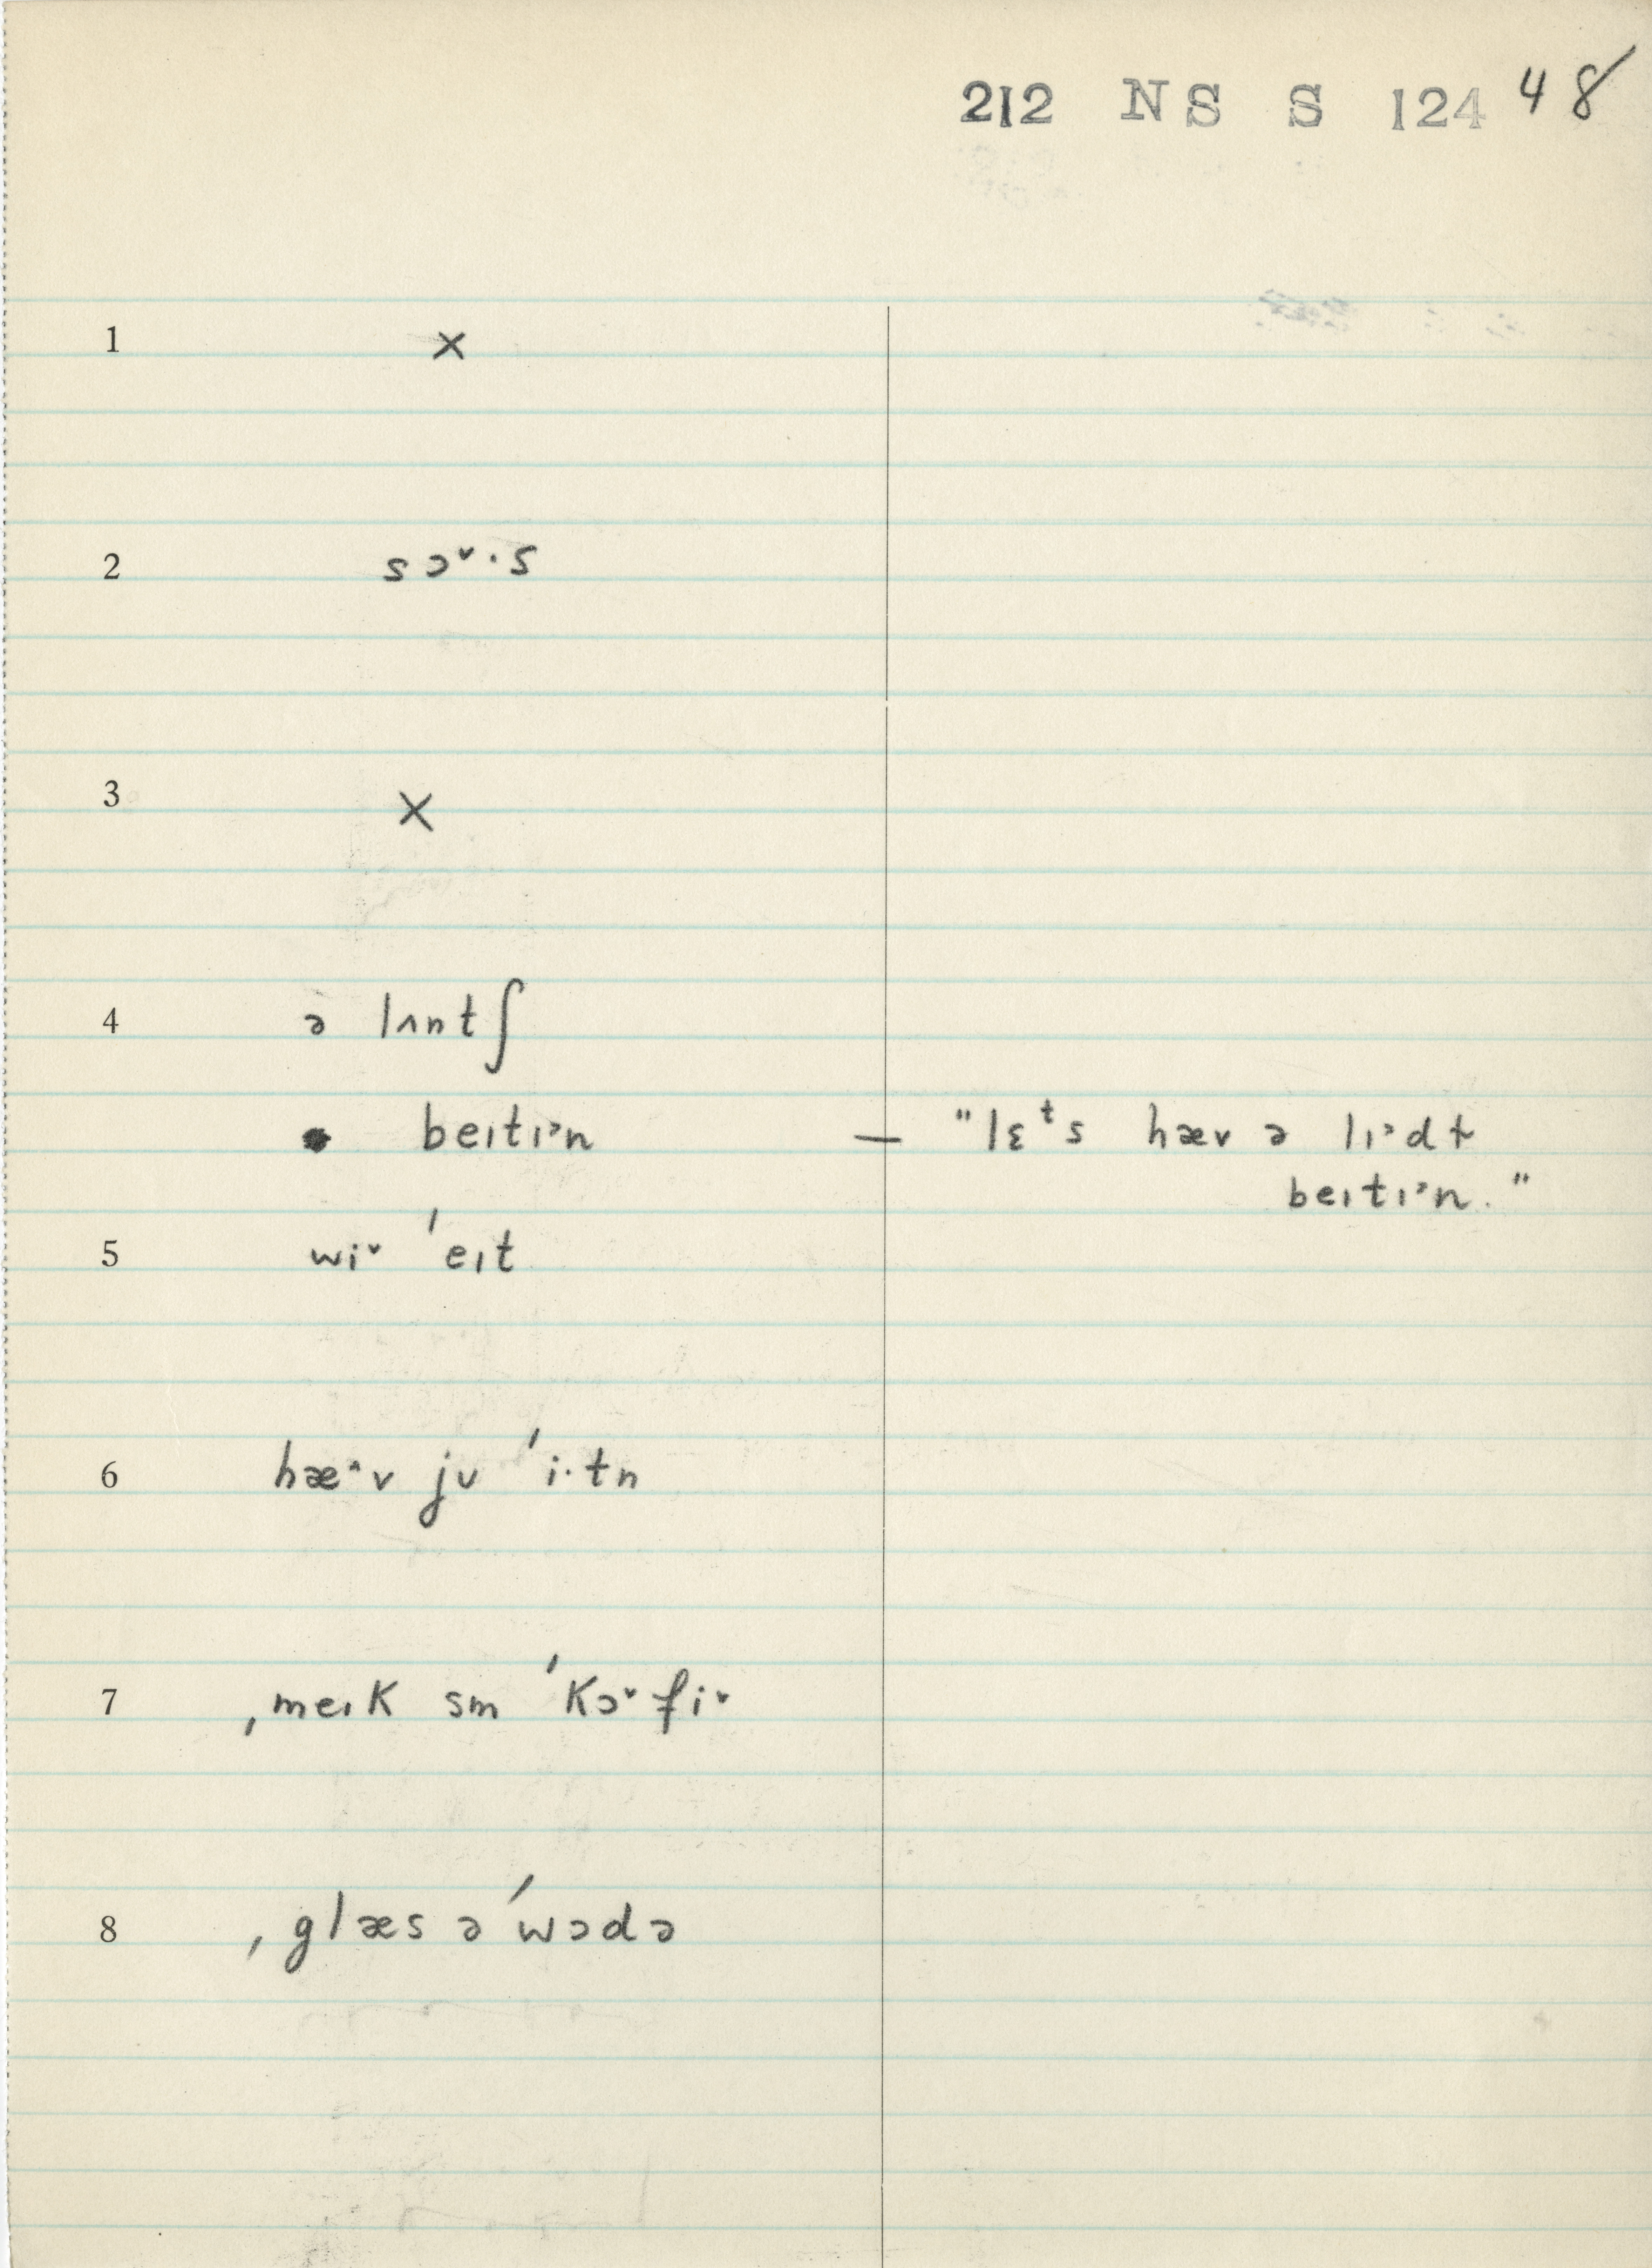 212 NS S 124 48
1 ×
2 sɔ˅·s
3 ×
4 ə lʌntʃ
beɪtɪᵊn — "lɛᵗs hæv ə lɪᵊdɫ
beɪtɪᵊn."
5 wi˅ ˈeɪt
6 hæ˄v jʊ ˈi·tn
7 ˌmeɪk sm ˈkɔ˅fi˅
8 ˌglæs ə ˈwɔdə